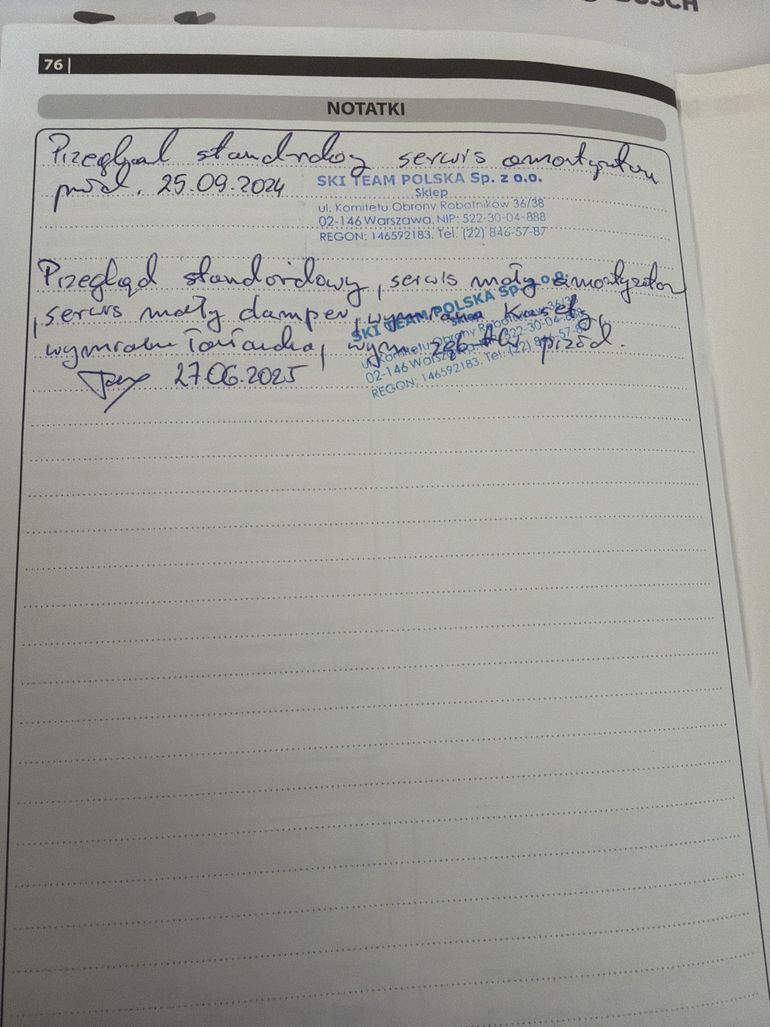 BOSCH
76
NOTATKI
Przegląd standardowy serwis amortyzatora
przód. 25.09.2024
SKI TEAM POLSKA Sp. z o.o.
Sklep
ul. Komitetu Obrony Robotników 36/38
02-146 Warszawa, NIP: 522-30-04-888
REGON: 146592183, Tel. (22) 846-57-87
Przegląd standardowy, serwis mały amortyzator
, serwis mały damper, wymiana kasety,
wymiana łańcucha, wym. zęb przód.
27.06.2025
SKI TEAM POLSKA Sp. z o.o.
Sklep
ul. Komitetu Obrony Robotników 36/38
02-146 Warszawa, NIP: 522-30-04-888
REGON: 146592183, Tel: (22) 846-57-87